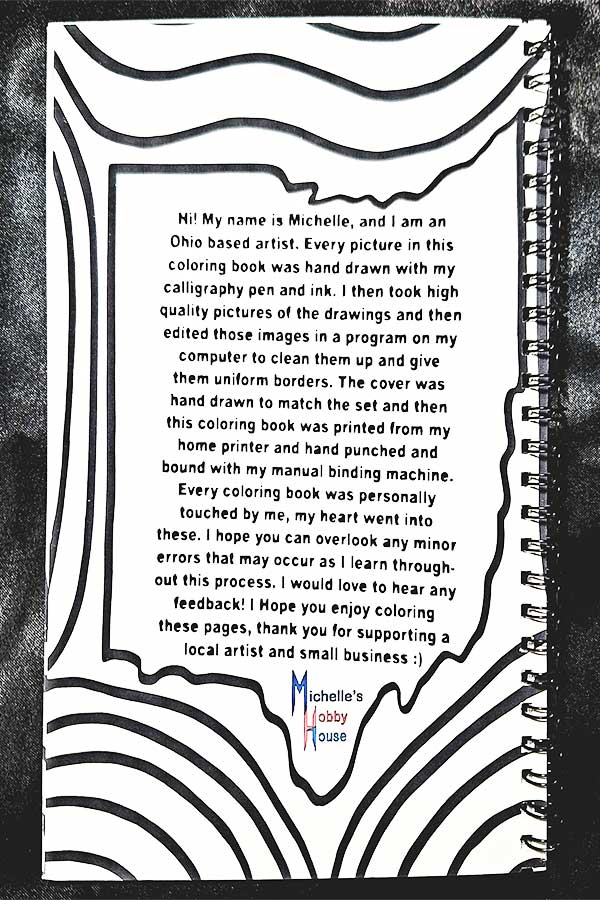 Hi! My name is Michelle, and I am an
Ohio based artist. Every picture in this
coloring book was hand drawn with my
calligraphy pen and ink. I then took high
quality pictures of the drawings and then
edited those images in a program on my
computer to clean them up and give
them uniform borders. The cover was
hand drawn to match the set and then
this coloring book was printed from my
home printer and hand punched and
bound with my manual binding machine.
Every coloring book was personally
touched by me, my heart went into
these. I hope you can overlook any minor
errors that may occur as I learn through-
out this process. I would love to hear any
feedback! I Hope you enjoy coloring
these pages, thank you for supporting a
local artist and small business :)
Michelle's
Hobby
House